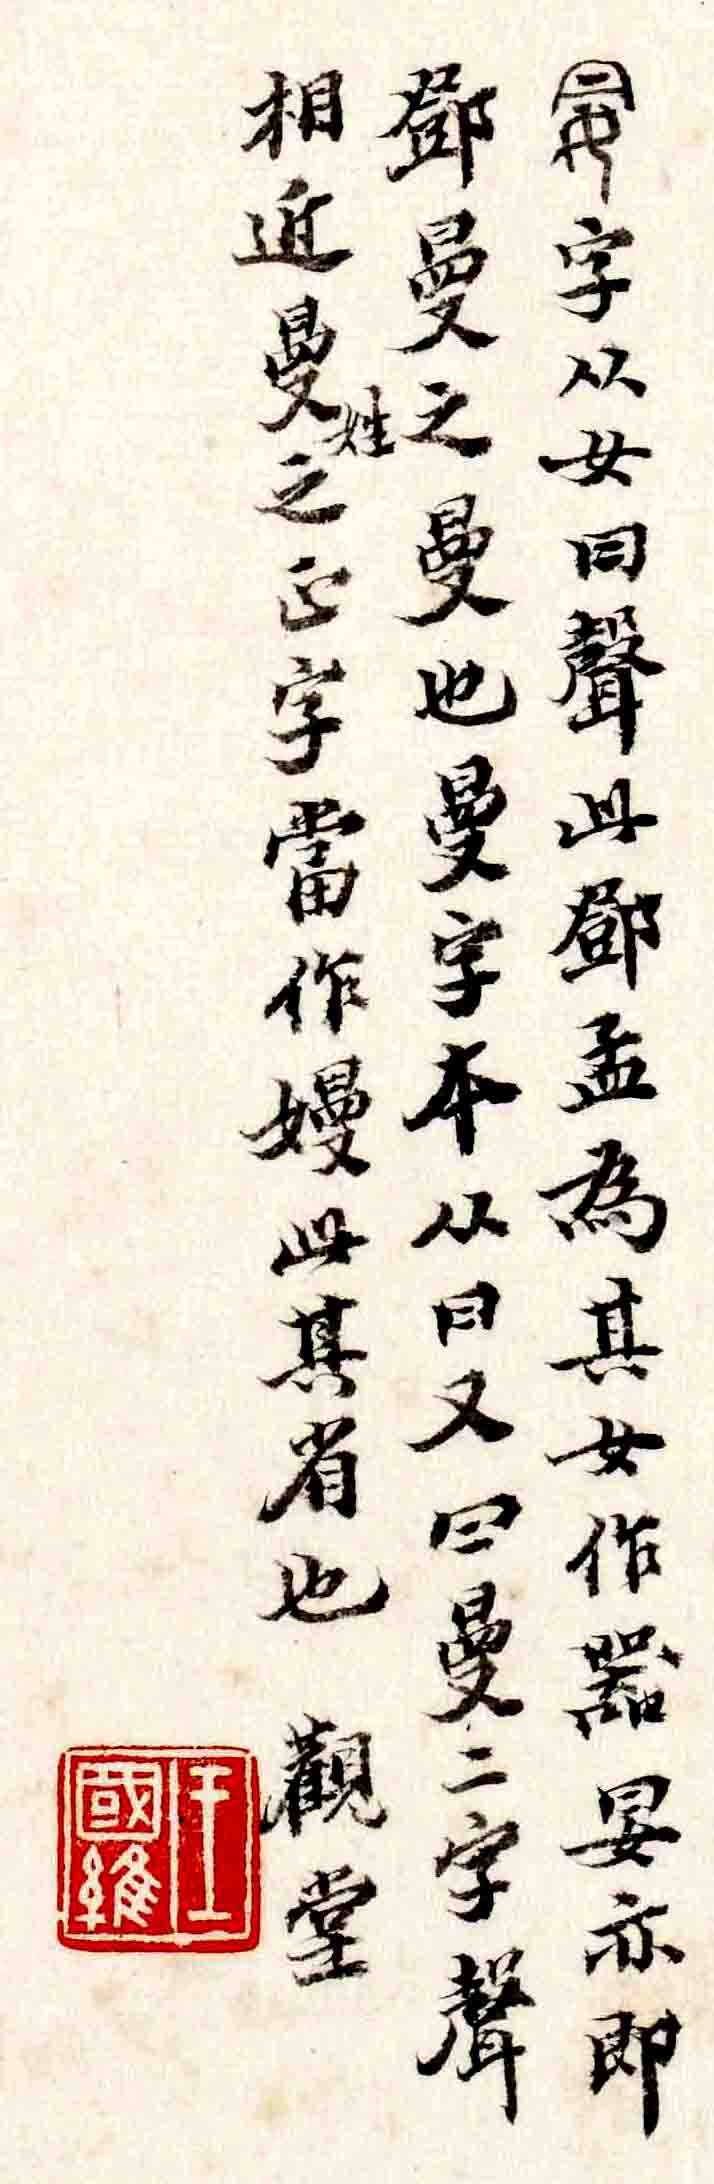 字从女曰聲此鄧孟為其女作器妟亦即
鄧曼之曼也曼字本从曰又曰曼二字聲
相近曼姓之正字當作嫚此其省也 觀堂
王國維